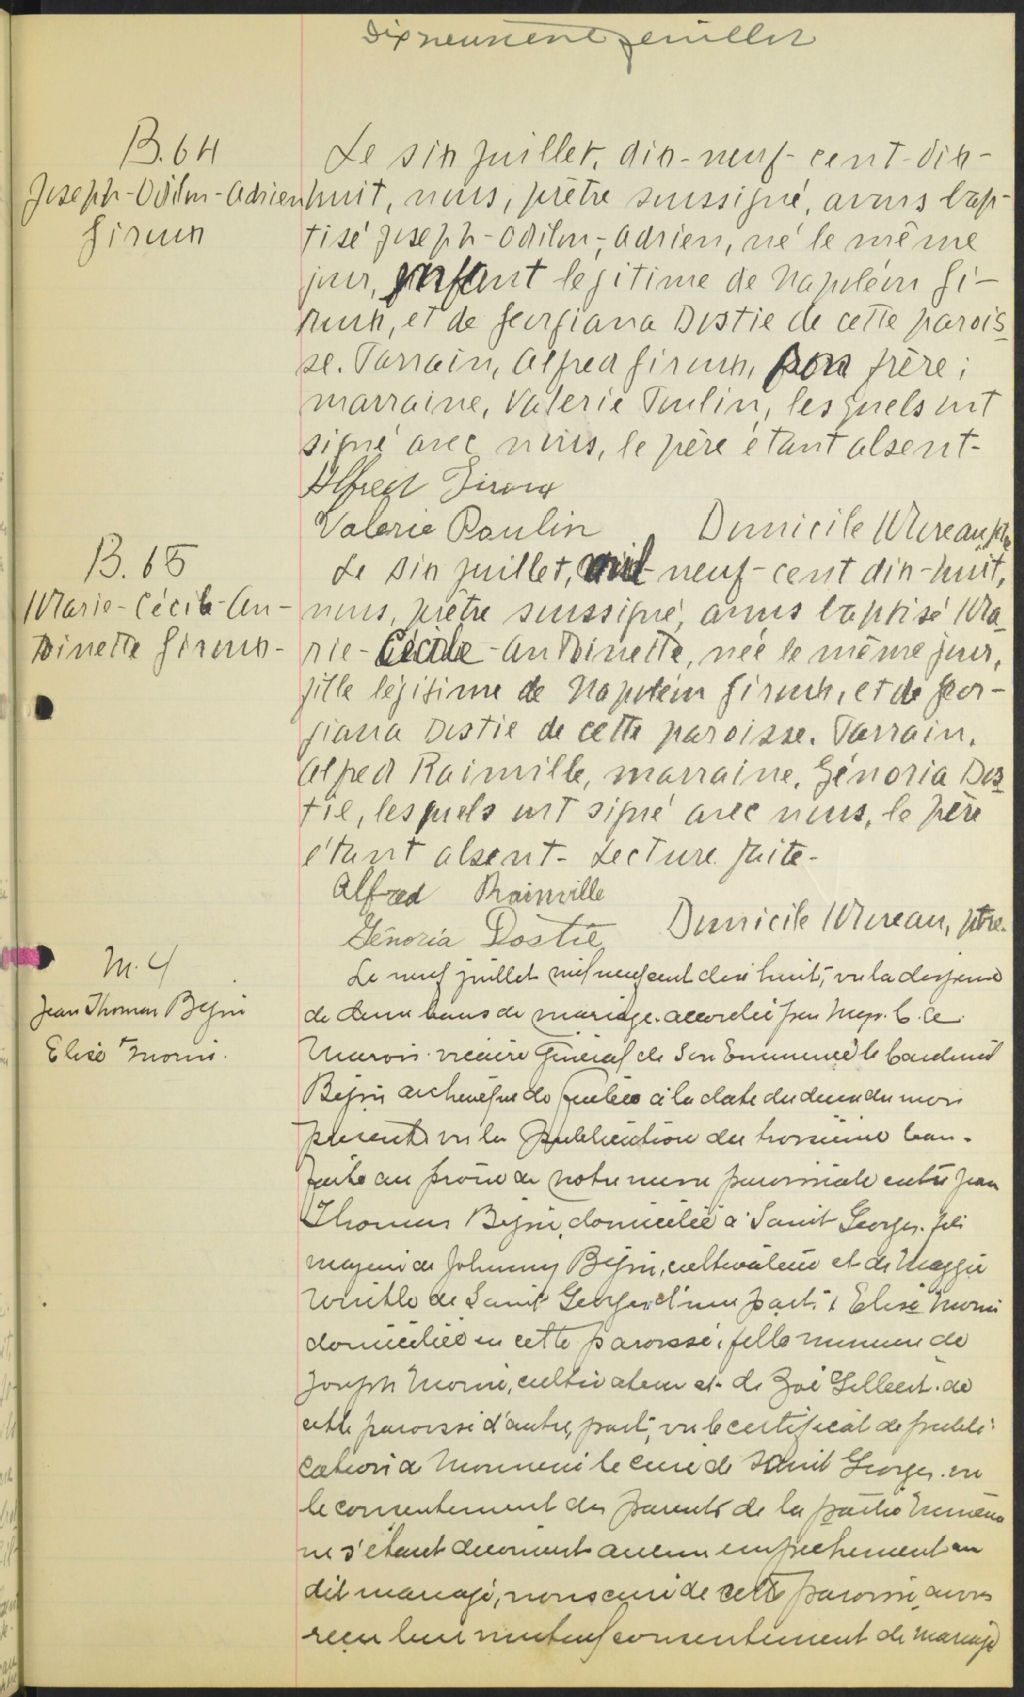 Dix neuvième feuillet
B. 64
Joseph-Odilon-Adrien
Giroux
Le six juillet, dix-neuf-cent-dix-
huit, nous, prêtre soussigné, avons bap-
tisé Joseph-Odilon-Adrien, né le même
jour, enfant légitime de Napoléon Gi-
roux, et de Georgiana Dostie de cette parois-
se. Parrain, Alfred Giroux, son frère;
marraine, Valerie Poulin, lesquels ont
signé avec nous, le père étant absent-
Alfred Giroux
Valerie Poulin Dominicile Moreau, ptre
B. 65
Marie-Cécile-An-
toinette Giroux-
Le six juillet, mil-neuf-cent dix-huit,
nous, prêtre soussigné, avons baptisé Ma-
rie-Cécile-Antoinette, née le même jour,
fille légitime de Napoléon Giroux, et de Geor-
giana Dostie de cette paroisse. Parrain,
Alfred Rainville, marraine, Génoria Dos-
tie, lesquels ont signé avec nous, le père
étant absent- Lecture faite-
Alfred Rainville
Génoria Dostie Dominicile Moreau, ptre.
M. 4
Jean Thomas Bégin
& Elise Morin.
Le neuf juillet mil neuf cent dix huit, vu la dispense
de deux bans de mariage accordée par Mgr. C. A.
Marois vicaire Général de Son Eminence le Cardinal
Bégin archevêque de Québec à la date du deux du mois
présent vu la publication du troisième ban
faite au prône de notre messe paroissiale entre Jean
Thomas Bégin, domicilié à Saint Georges, fils
majeur de Johnny Bégin, cultivateur et de Maggie
de Saint Georges d'une part; & Elise Morin
domiciliée en cette paroisse, fille mineure de
Joseph Morin, cultivateur et de Zoé Gilbert de
cette paroisse d'autre part; vu le certificat de publi-
cation de Monsieur le curé de Saint Georges vu
le consentement des parents de la partie mineure
ne s'étant découvert aucun empêchement au
dit mariage, nous curé de cette paroisse, avons
reçu leur mutuel consentement de mariage